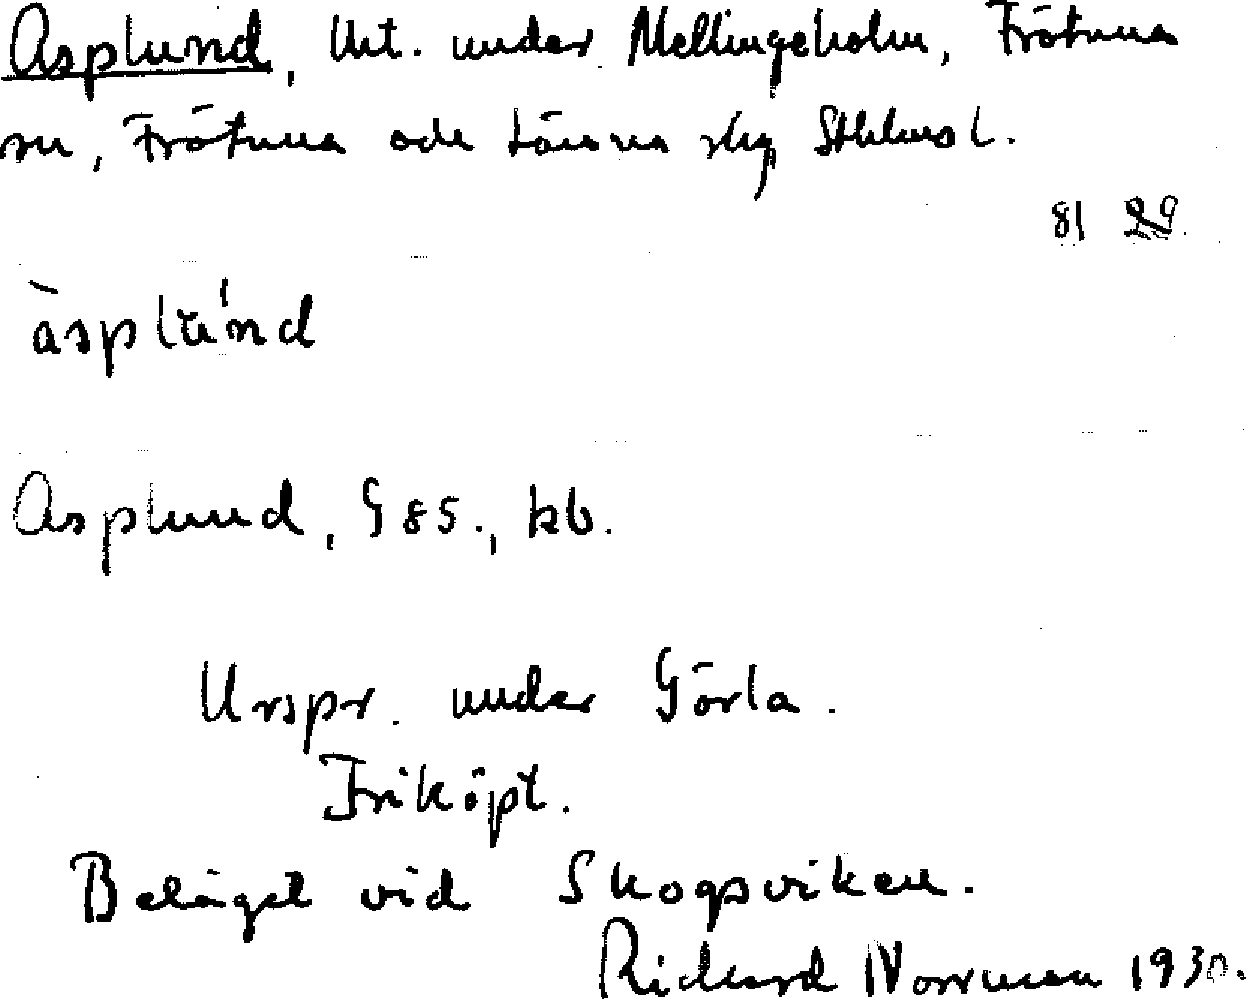 Asplund, Utt. under Mellingeholm, Frötuna
sn, Frötuna och Länna skg Sthlms l.
81
àsplúnd
Asplund, G 85., kb.
Urspr. under Görla.
Friköpt.
Beläget vid Skogsviken.
Rickard Norrman 1930.